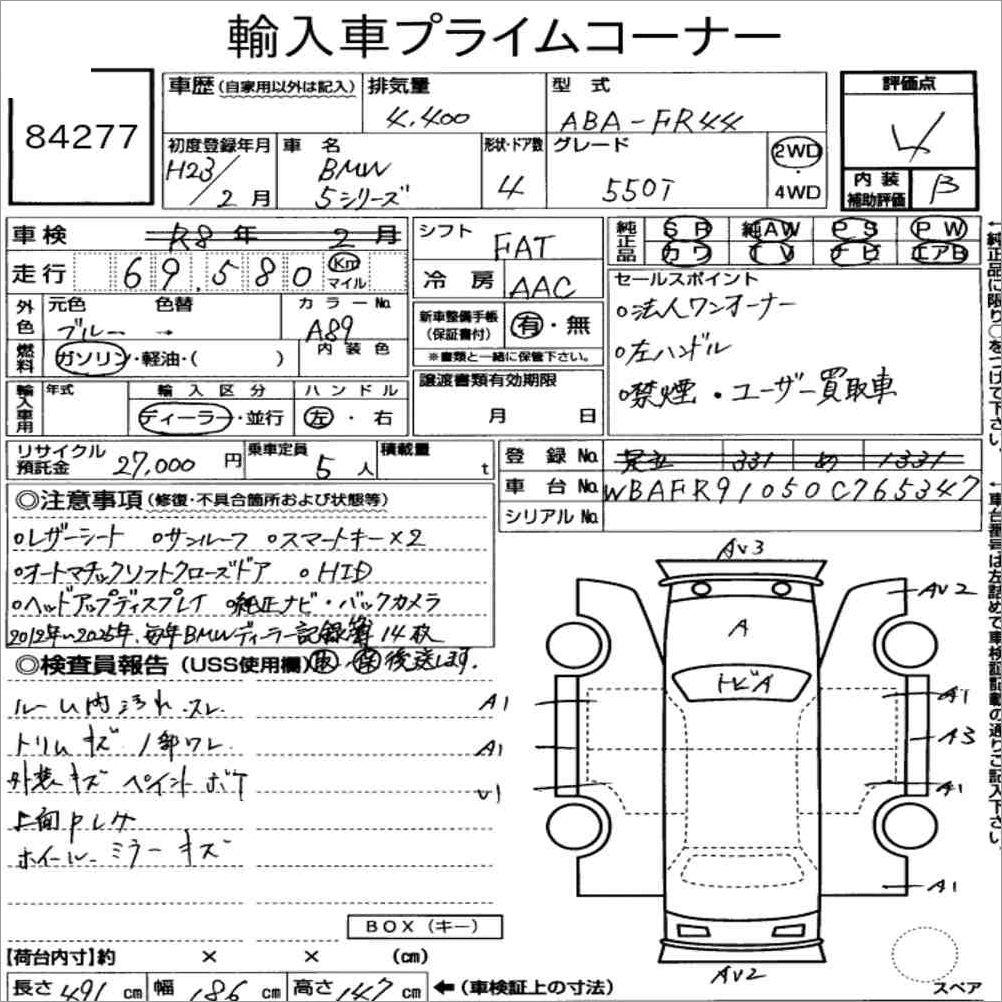 輸入車プライムコーナー
84277
車歴 (自家用以外は記入) 排気量 4.400 型式 ABA-FR44 評価点 4
初度登録年月 H23/2月 車名 BMW 5シリーズ 形状・ドア数 4 グレード 550I 2WD・4WD 内装補助評価 B
車検 R8年 2月 シフト FAT 純正品 SR 純AW PS PW
カワ TV ナビ エアB
走行 69.580 Km マイル 冷房 AAC
外色 元色 ブルー → 色替 カラーNo. A89 内装色
新車整備手帳 (保証書付) 有・無
※書類と一緒に保管下さい。
燃料 ガソリン・軽油・( )
セールスポイント
○法人ワンオーナー
○左ハンドル
○禁煙・ユーザー買取車
輸入車用 年式 輸入区分 ディーラー・並行 ハンドル 左・右
譲渡書類有効期限 月 日
リサイクル預託金 27,000円 乗車定員 5人 積載量 t
登録No. 足立 331 め 1331
車台No. WBAFR91050C765347
シリアルNo.
◎注意事項 (修復・不具合箇所および状態等)
○レザーシート ○サンルーフ ○スマートキー×2
○オートマチックソフトクローズドア ○HID
○ヘッドアップディスプレイ ○純正ナビ・バックカメラ
2012年~2025年、毎年BMWディーラー記録簿14枚
◎検査員報告 (USS使用欄) 取・保 後送します.
ルーム内汚れ スレ
トリムキズ 1部ワレ
外装キズ ペイントボケ
上面Pレケ
ホイール ミラーキズ
AV3
AV2
A
トビA
A1 A1
A1 A3
V1 A1
A1
AV2
BOX (キー)
スペア
【荷台内寸】約 × × (cm)
長さ 491 cm 幅 186 cm 高さ 147 cm ←(車検証上の寸法)
←純正品に限り○をつけて下さい。
←車台番号は左詰めで車検証記載の通りご記入下さい。